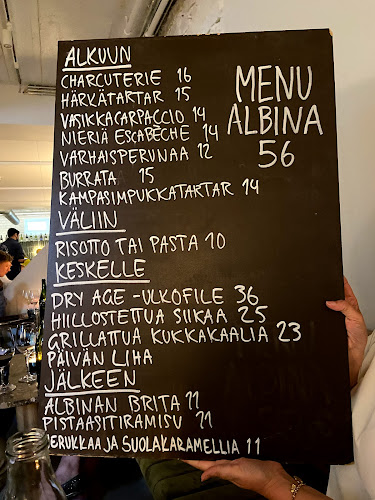 ALKUUN
CHARCUTERIE 16
HÄRKÄTARTAR 15
VASIKKACARPACCIO 14
NIERIÄ ESCABECHE 14
VARHAISPERUNAA 12
BURRATA 15
KAMPASIMPUKKATARTAR 14
VÄLIIN
RISOTTO TAI PASTA 10
KESKELLE
DRY AGE -ULKOFILE 36
HIILLOSTETTUA SIIKAA 25
GRILLATTUA KUKKAKAALIA 23
PÄIVÄN LIHA
JÄLKEEN
ALBINAN BRITA 11
PISTAASITIRAMISU 11
HERUKKAA JA SUOLAKARAMELLIA 11
MENU
ALBINA
56